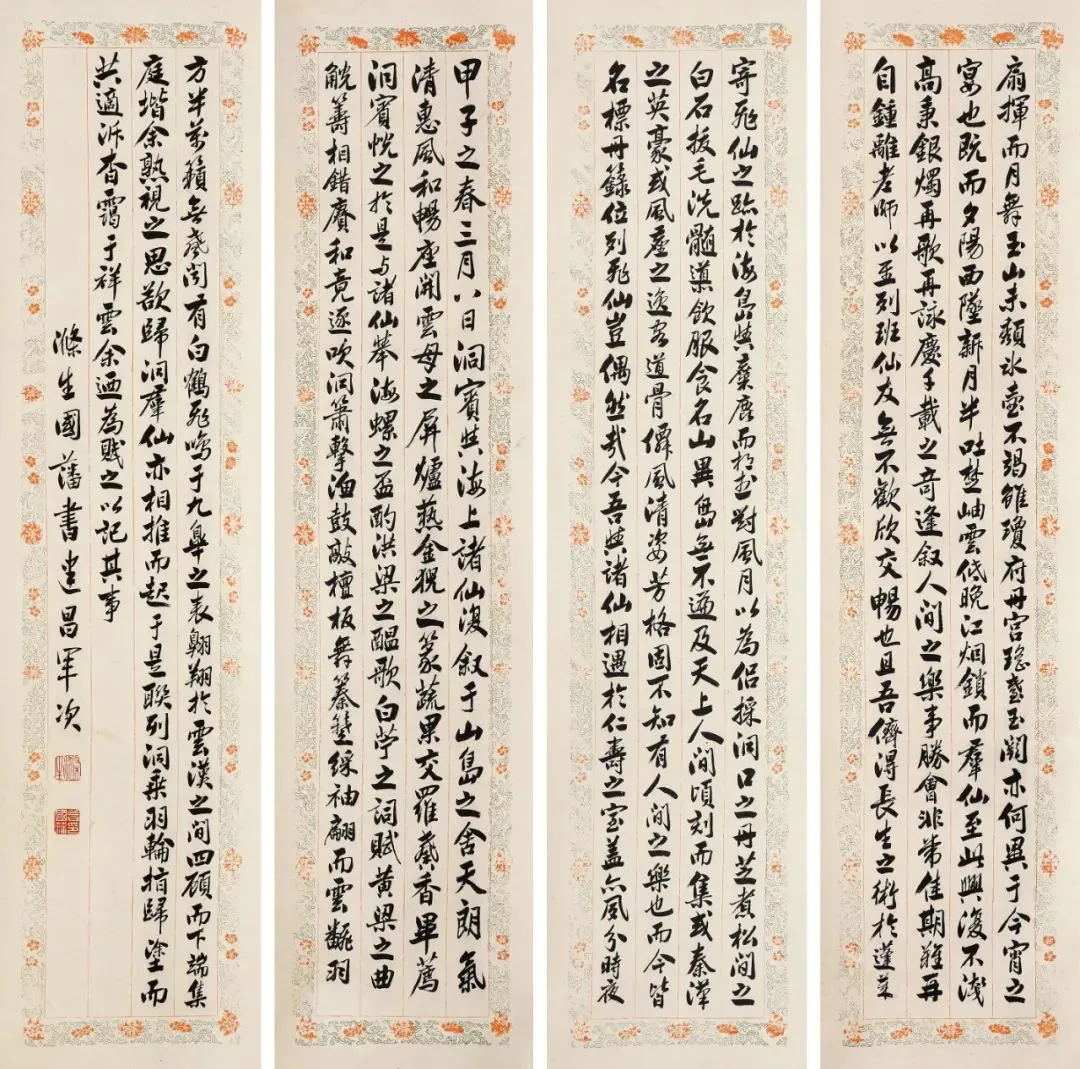 甲子之春三月八日洞賓與海上諸仙復叙于山島之舍天朗氣
清惠風和暢座開雲母之屏爐爇金猊之篆蔬果交羅蘂香畢薦
洞賓悅之於是与諸仙舉海螺之盃酌洪梁之醞歌白苧之詞賦黃梁之曲
觥籌相錯賡和竞逐吹洞簫擊漁鼓敲檀板舞蓁綵袖翩而雲飜羽
扇揮而月舞玉山未頹氷壺不竭雖瓊府丹宫瑤臺玉闕亦何異于今宵之
宴也既而夕陽西墜新月半吐楚岫雲低晚江烟鎖而羣仙至此興復不淺
高秉銀燭再歌再詠慶千載之奇逢叙人間之樂事勝會非常佳期難再
自鍾離老師以至列班仙友無不歡欣交暢也且吾儕淂長生之術於蓬萊
寄飛仙之跡於海島與麋鹿而對風月以為侶採洞口之丹芝煮松間之
白石拔毛洗髓導飲服食名山異島無不遊及天上人間頃刻而集或秦漢
之英豪或風塵之逸客道骨僊風清姿芳格固不知有人間之樂也而今皆
名標丹籙位列飛仙豈偶然哉今吾與諸仙相遇於仁壽之室盖亦風分時夜
方半萬籟無聲闻有白鶴飛鳴于九皋之表翱翔於雲漢之間四顧而下端集
庭堦余熟視之思欲歸洞羣仙亦相推而起于是聯列洞乘羽輪指歸塗而
共適泝杳靄于祥雲余迺為賤之以記其事
滌生國藩書建昌軍次